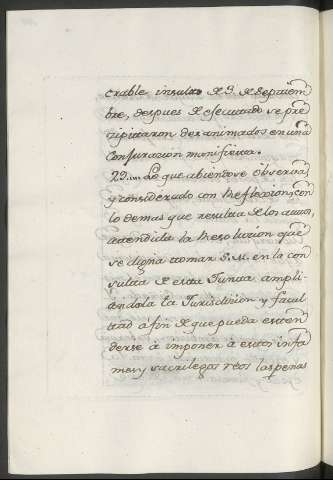 crable insulto de 3. de Septiem
bre, despues de efecutado se pre
zipitaron desanimados en una
Conjurazion manifiesta.
29.... Lo que abiendose observa
y considerado con Reflexion, con
lo demas que resulta de los autos,
atendida la Resoluzion que
se digna tomar S.M. en la con
sulta de esta Junta ampli-
andola la Jurisdizion y facul
tad á fin de que pueda esten
derse á imponer á estos infa
mes y sacrilegos reos las penas